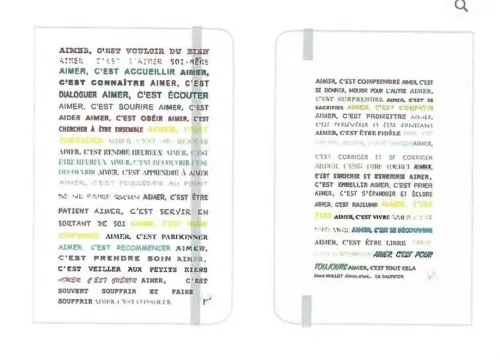 AIMER, C'EST VOULOIR DU BIEN
AIMER, C'EST S'AIMER SOI-MÊME
AIMER, C'EST ACCUEILLIR AIMER,
C'EST CONNAÎTRE AIMER, C'EST
DIALOGUER AIMER, C'EST ÉCOUTER
AIMER, C'EST SOURIRE AIMER, C'EST
AIDER AIMER, C'EST OBÉIR AIMER, C'EST
CHERCHER À ÊTRE ENSEMBLE AIMER, C'EST
PARTAGER AIMER C'EST SE RÉJOUIR
AIMER, C'EST RENDRE HEUREUX AIMER, C'EST
ÊTRE HEUREUX AIMER, C'EST DÉCOUVRIR ET SE
DÉCOUVRIR AIMER, C'EST APPRENDRE À AIMER
AIMER, C'EST POSSÉDER AU POINT
DE NE FAIRE QU'UN AIMER, C'EST ÊTRE
PATIENT AIMER, C'EST SERVIR EN
SORTANT DE SOI AIMER, C'EST FAIRE
CONFIANCE AIMER, C'EST PARDONNER
AIMER, C'EST RECOMMENCER AIMER,
C'EST PRENDRE SOIN AIMER,
C'EST VEILLER AUX PETITS RIENS
AIMER C'EST GUÉRIR AIMER, C'EST
SOUVENT SOUFFRIR ET FAIRE
SOUFFRIR AIMER C'EST CONSOLER
AIMER, C'EST COMPRENDRE AIMER, C'EST
SE DONNER, MOURIR POUR L'AUTRE AIMER,
C'EST SURPRENDRE AIMER, C'EST SE
SACRIFIER AIMER, C'EST COMPATIR
AIMER, C'EST PROMETTRE AIMER,
C'EST PERSÉVÉRER ET ÊTRE CONSTANT
AIMER, C'EST ÊTRE FIDÈLE AIMER,
C'EST CORRIGER ET SE CORRIGER
AIMER, C'EST DIRE MERCI AIMER,
C'EST ENRICHIR ET S'ENRICHIR AIMER,
C'EST EMBELLIR AIMER, C'EST PRIER
AIMER, C'EST S'ÉPANOUIR ET ÉCLORE
AIMER, C'EST RAJEUNIR AIMER, C'EST
ÊTRE AIMER, C'EST VIVRE AIMER, C'EST
AIMER, C'EST SE DÉCOUVRIR
AIMER, C'EST ÊTRE LIBRE AIMER,
AIMER, C'EST POUR
TOUJOURS AIMER, C'EST TOUT CELA